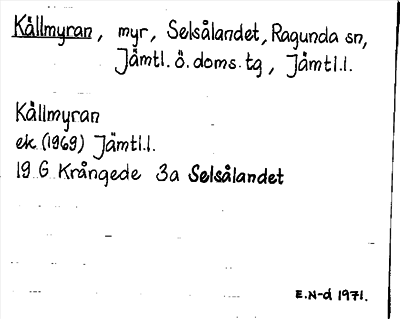 Källmyran, myr, Selsålandet, Ragunda sn,
Jämtl. ö. doms. tg, Jämtl.l.
Källmyran
ek. (1969) Jämtl.l.
19 G Krångede 3a Selsålandet
E.N-d 1971.